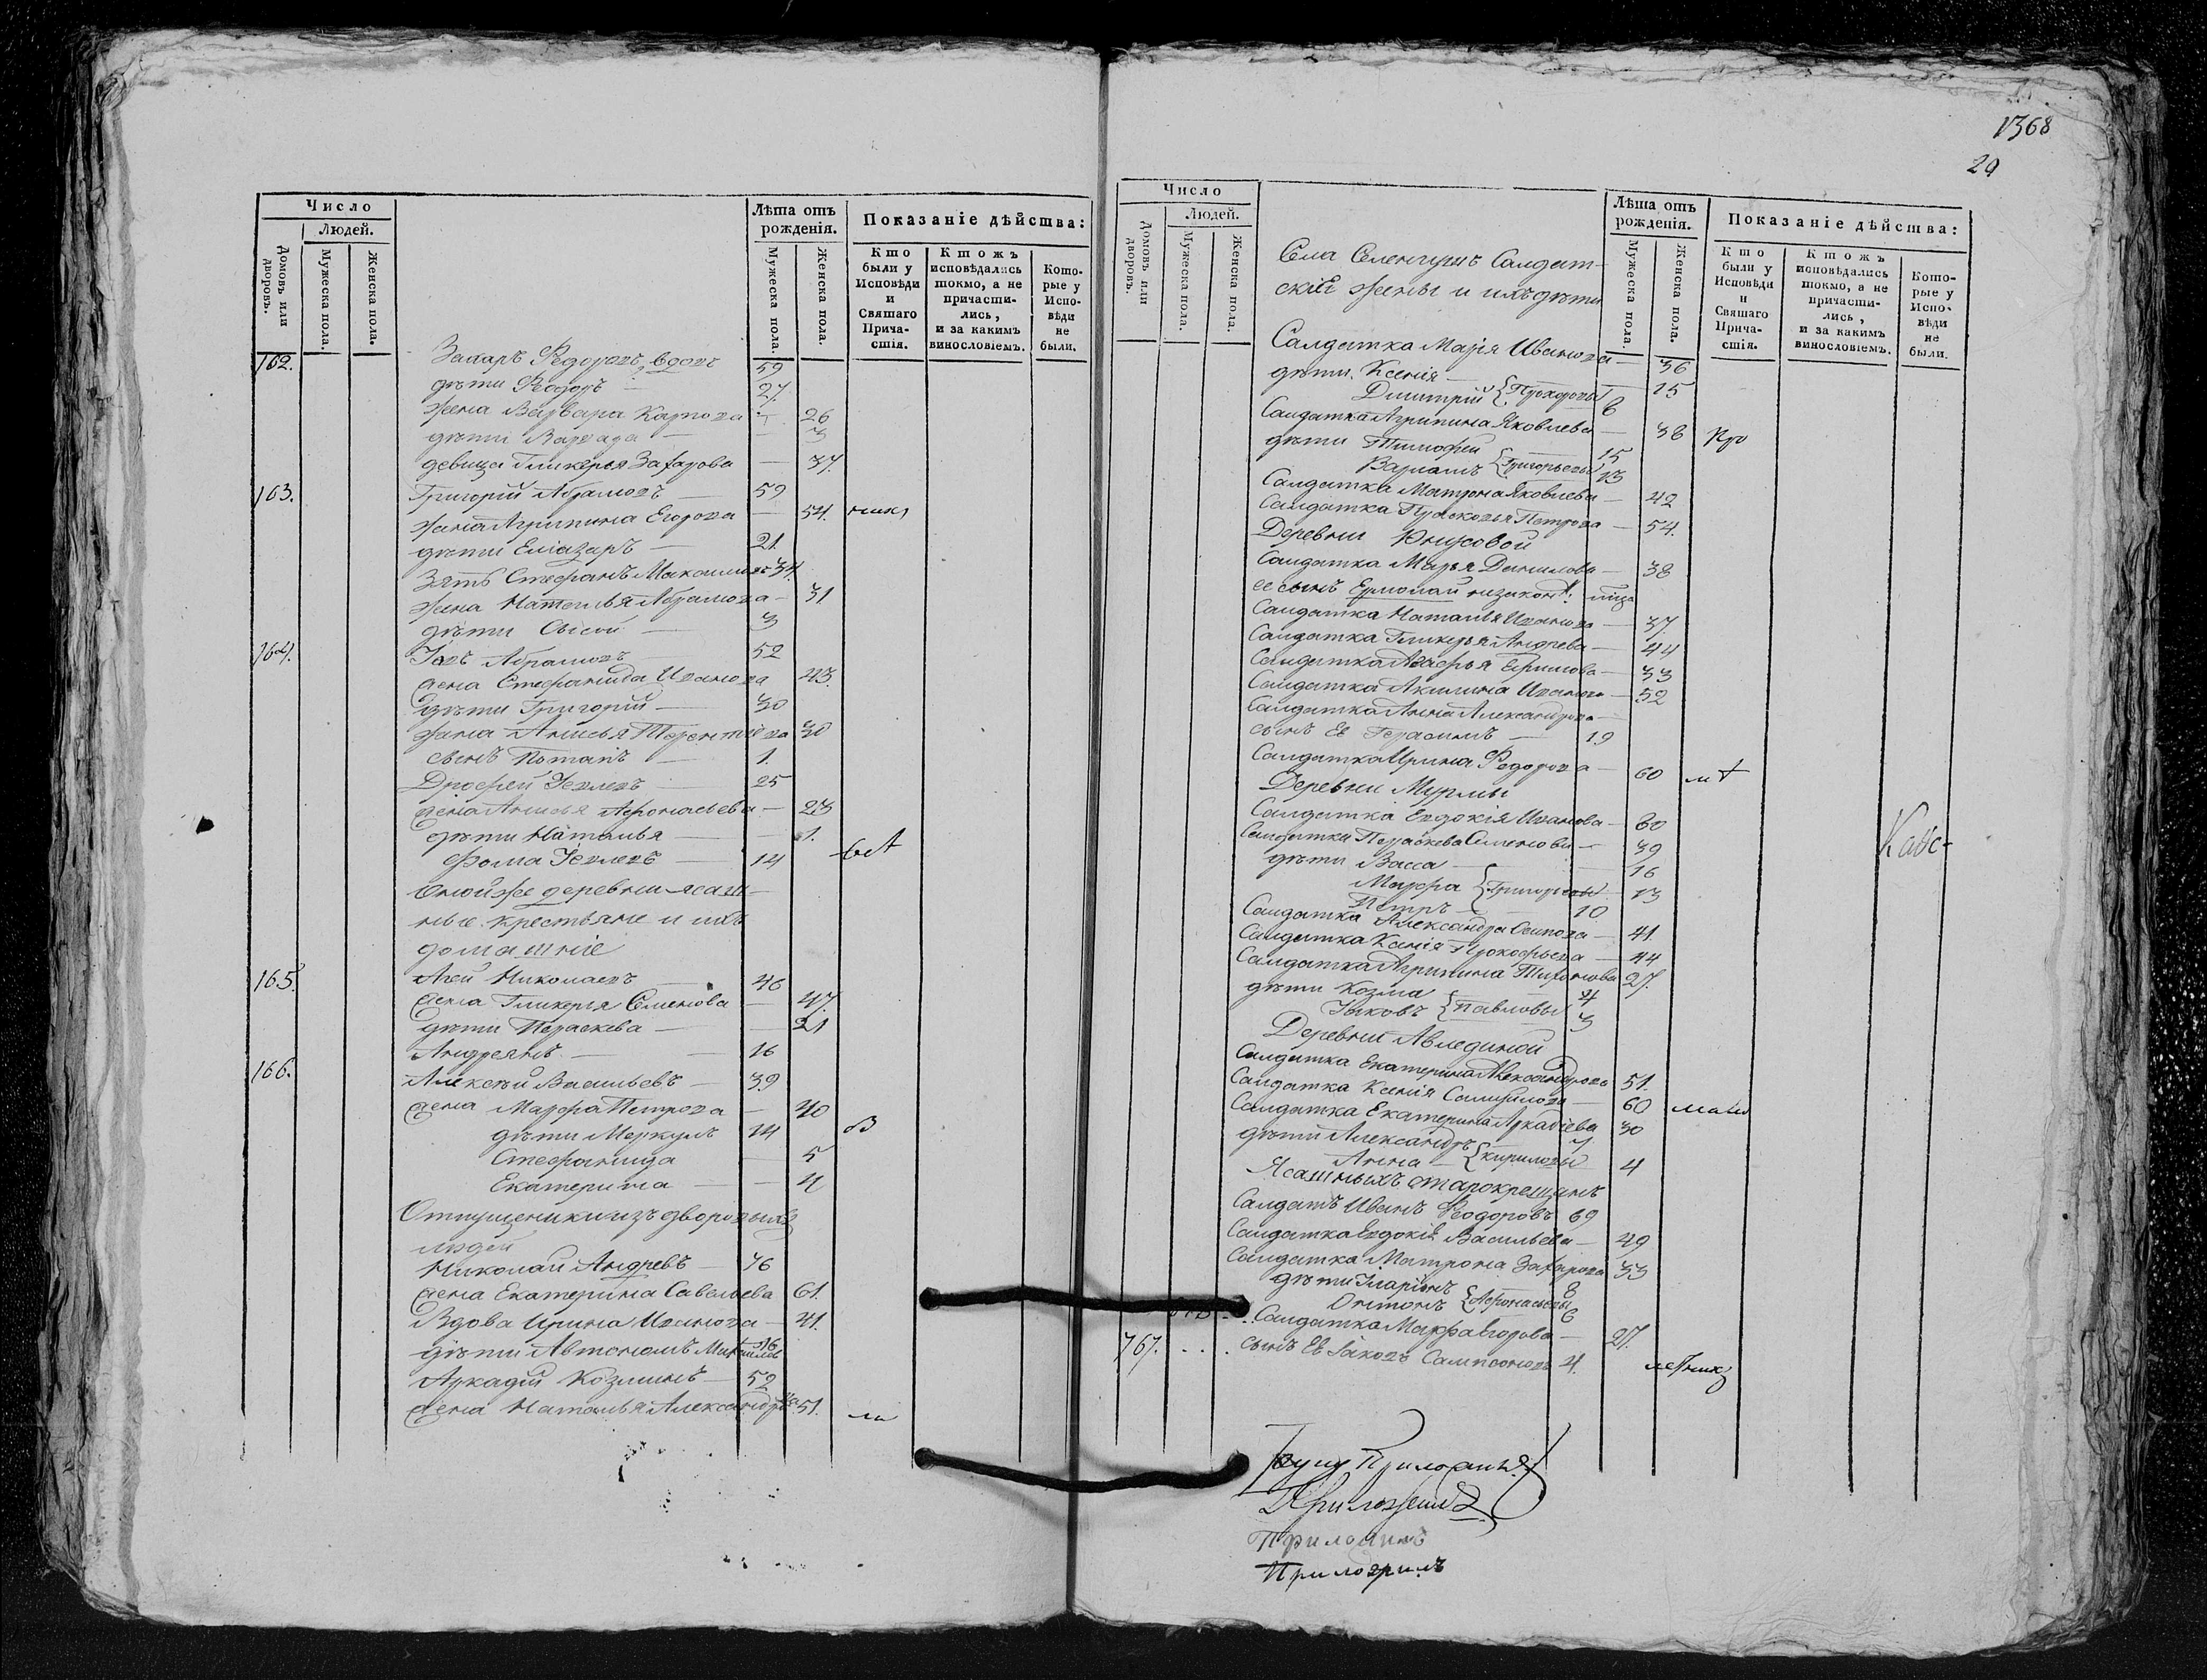 1368
29
Число
Людей.
Домовъ или дворовъ.
Мужеска пола.
Женска пола.
Лѣта отъ рожденія.
Мужеска пола.
Женска пола.
Показаніе дѣйства:
Кто были у Исповѣди и Святаго Прича-стія.
Ктожъ исповѣдались токмо, а не причасти-лись, и за какимъ винословіемъ.
Кото-рые у Испо-вѣди не были.
162. Захаръ Федоровъ, вдовъ 59
дѣти Ѳеодоръ — 27.
жена Варвара Карпова — 26
дѣти Варвара — 3
девица Гликерья Захарова — 37.
163. Григорій Абрамовъ — 59
жена Агрипина Егорова — 54.
дѣти Еліазаръ — 21.
Зять Стефанъ 34.
жена Наталья Абрамова — 31
дѣти Сысой — 3
164. Іовъ Абрамовъ 52
жена Стефанида Иванова 43.
дѣти Григорій — 30
жена Анисья Терентіева 30
сынъ Потапъ — 1.
Дрофей Іевлевъ — 25
жена Анисья Афонасьева — 23
дѣти Наталья — 1.
Фома Іевлевъ — 14
Оной же деревни ясаш-
ные крестьяне и ихъ
домашніе
165. Агей Николаевъ — 46
жена Гликерья Семенова — 47.
дѣти Параскева — 21
Андреянъ — 16
166. Алексѣй Васильевъ — 39
жена Марфа Петрова — 40
дѣти Меркулъ 14
Стефанида — 5
Екатерина — 4
Отпущеники изъ дворовыхъ
людей
Николай Андревъ — 76
жена Екатерина Савельева 61.
Вдова Ирина Иванова — 41.
дѣти Автономъ 16
Аркадій Козминъ — 52
жена Наталья Александрова 51.
Число
Людей.
Домовъ или дворовъ.
Мужеска пола.
Женска пола.
Лѣта отъ рожденія.
Мужеска пола.
Женска пола.
Показаніе дѣйства:
Кто были у Исповѣди и Святаго Прича-стія.
Ктожъ исповѣдались токмо, а не причасти-лись, и за какимъ винословіемъ.
Кото-рые у Испо-вѣди не были.
Села Селенгушъ Салдат-
скіе жены и ихъ дѣти
Салдатка Марія Иванова — 36
дѣти Ксенія — 15
Димитрій {Прохоровы 6
Салдатка Агрипина Яковлева — 38
дѣти Тимофей 15
Варламъ {Григорьевы 13
Салдатка Матрона Яковлева — 42
Салдатка Прасковья Петрова — 54.
Деревни
Салдатка Марья Данилова — 38
ее сынъ Ермолай
Салдатка Наталья Иванова — 37.
Салдатка Гликерья Андрева — 44
Салдатка Агафья Ефимова — 33
Салдатка Акилина Иванова — 52
Салдатка Анна Александрова —
сынъ Ее Герасимъ — 19
Салдатка Ирина Федорова — 60
Деревни Мурлы
Салдатка Евдокія Иванова — 60
Салдатка Параскева Семенова — 39
дѣти Васса — 16
Марфа {Григорьевы 13
Петръ — 10
Салдатка Александра Осипова — 41.
Салдатка Ксенія Прокофьева — 44
Салдатка Агрипина Тихонова 27.
дѣти Козма 4
Яковъ {Павловы 3
Деревни
Салдатка Екатерина Александрова 51.
Салдатка Ксенія Самуилова — 60
Салдатка Екатерина Аркадіева 30
дѣти Александръ 7
Анна — {Кириловы 4
Ясашныхъ старокрещенъ
Салдатъ Иванъ Ѳеодоровъ 69
Салдатка Евдокія Васильева — 49
Салдатка Матрона Захарова 33
дѣти Иларіонъ 8
Антонъ {Афонасьевы 6
Салдатка Марфа Егорова — 27.
767. . . . сынъ Ее Іаковъ Сампсоновъ 4.